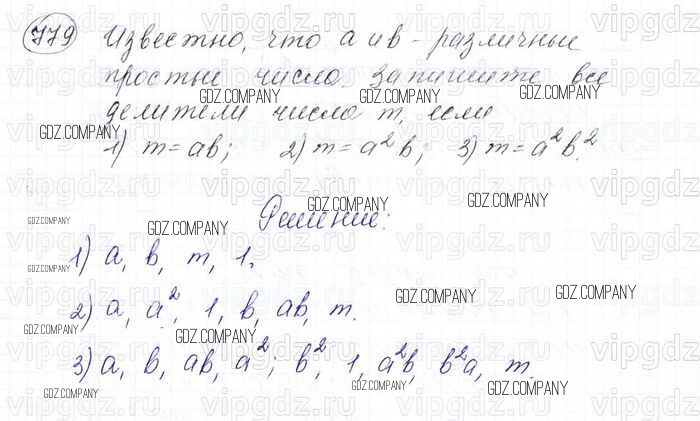 779 Известно, что a и b - различные
простые числа. Запишите все
делители числа m, если
1) m = ab; 2) m = a²b; 3) m = a²b².
Решение:
1) a, b, m, 1.
2) a, a², 1, b, ab, m.
3) a, b, ab, a²; b², 1, a²b, b²a, m.
GDZ.COMPANY
vipgdz.ru